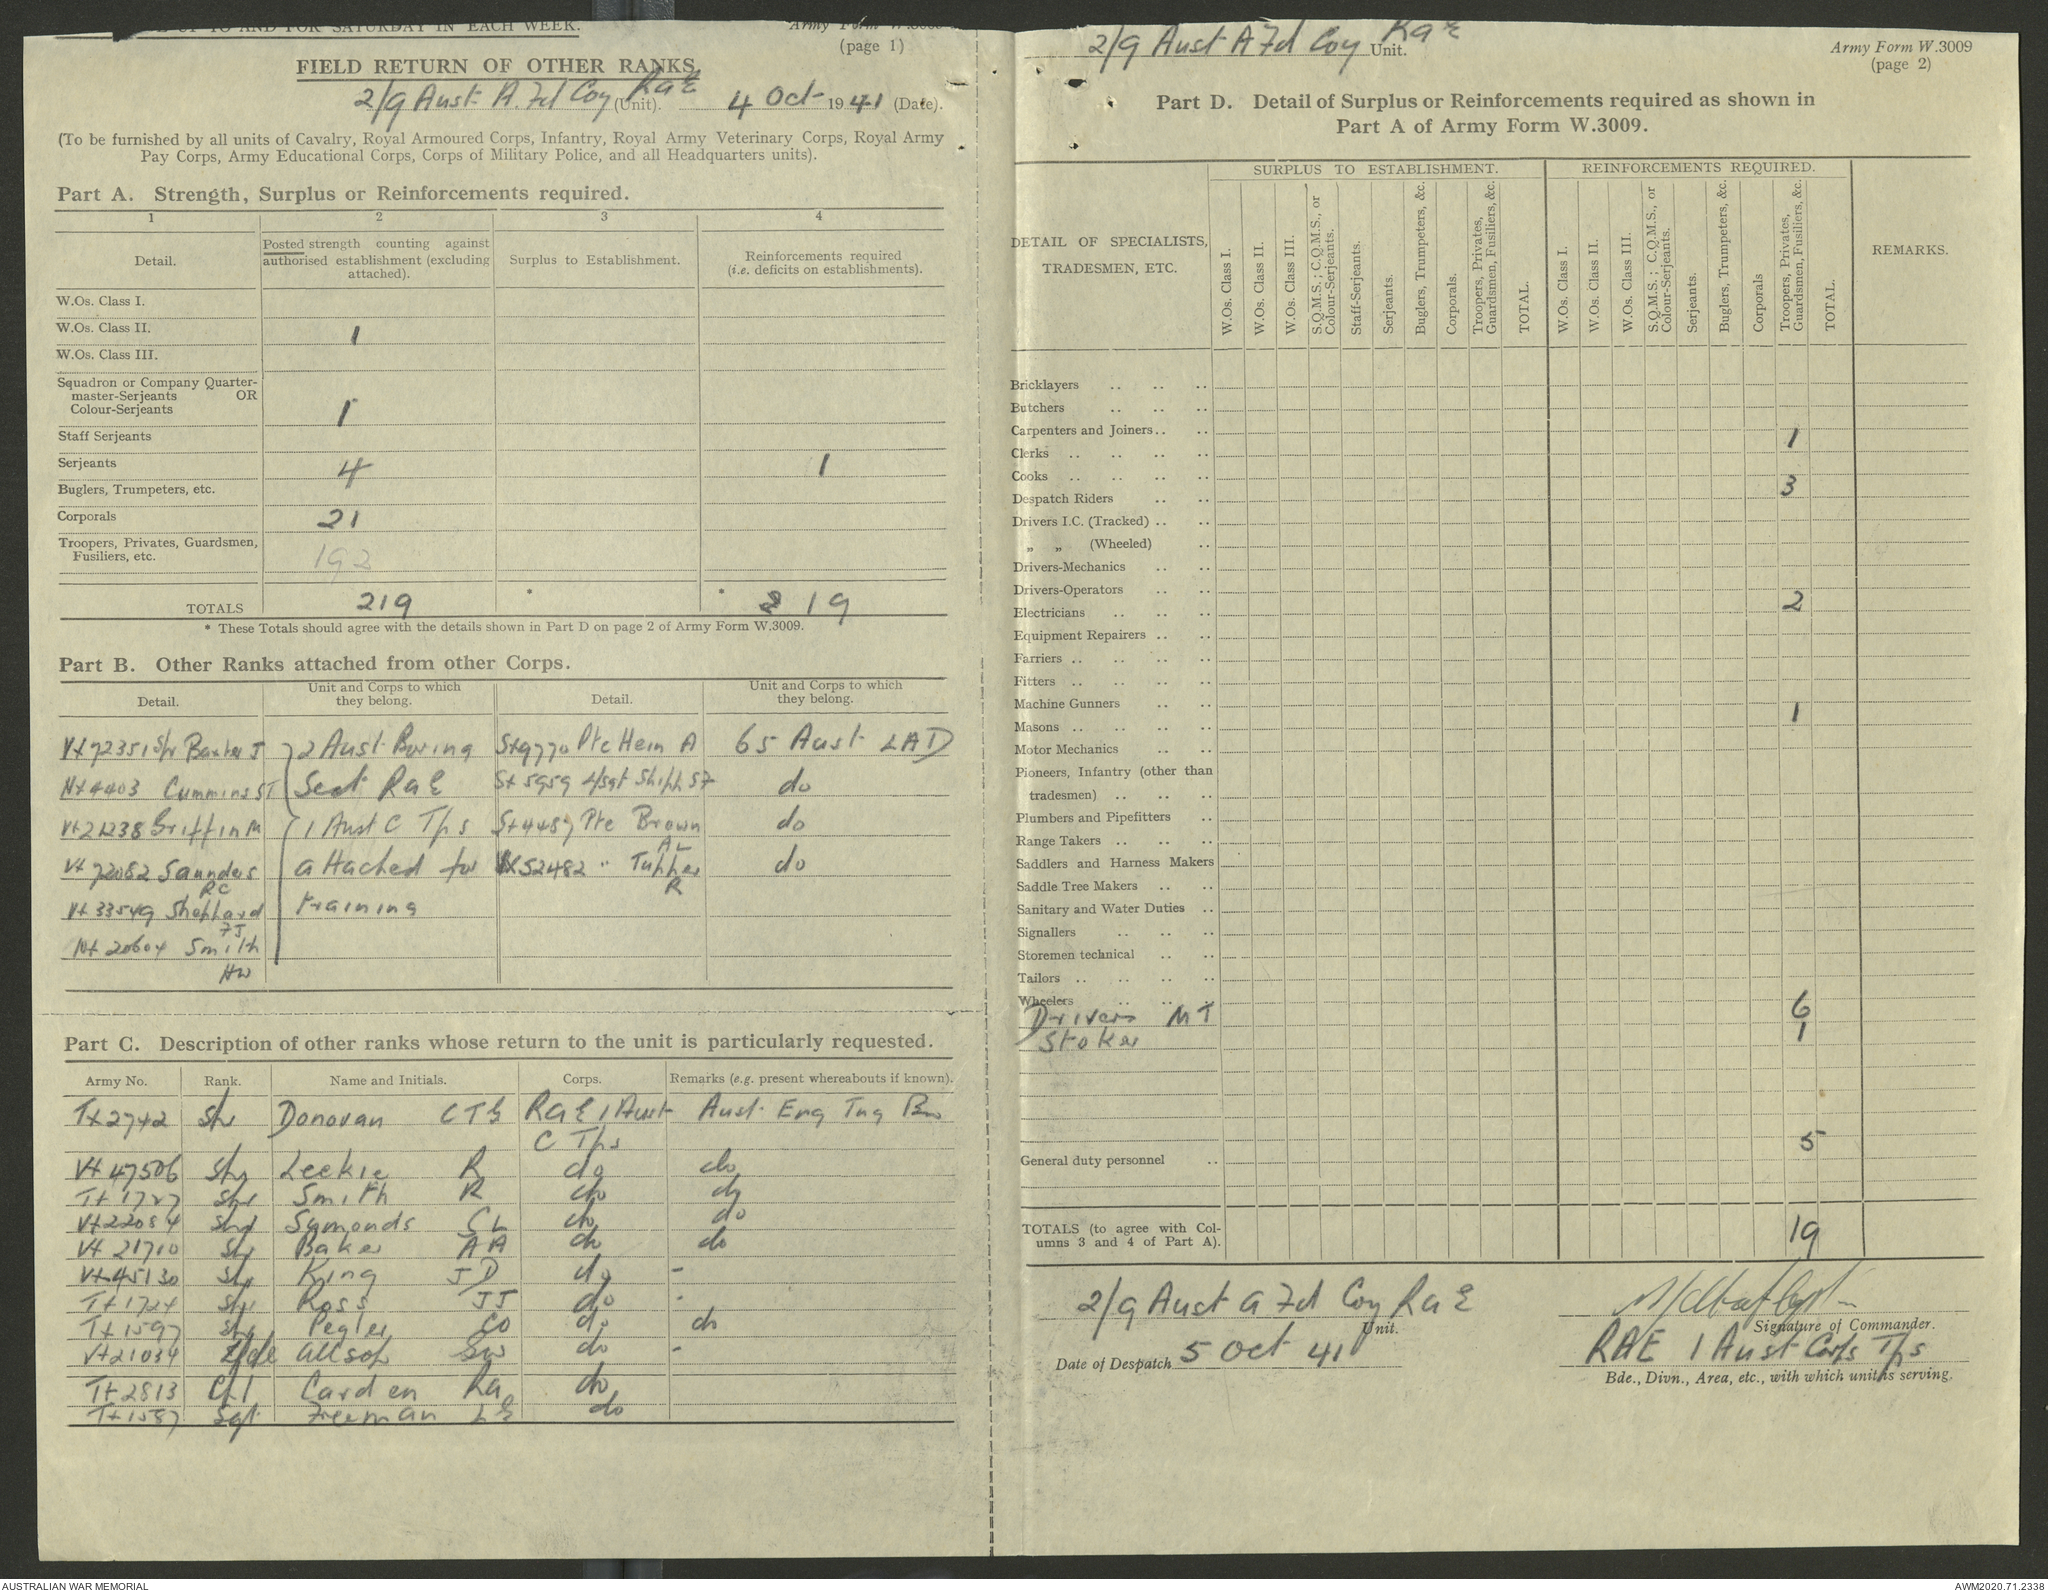 UP TO AND FOR SATURDAY IN EACH WEEK.
Army Form W.3009
(page 1)
FIELD RETURN OF OTHER RANKS.
2/9 Aust A. Fd Coy RaE (Unit). 4 Oct 1941 (Date).
(To be furnished by all units of Cavalry, Royal Armoured Corps, Infantry, Royal Army Veterinary Corps, Royal Army
Pay Corps, Army Educational Corps, Corps of Military Police, and all Headquarters units).
Part A. Strength, Surplus or Reinforcements required.
1 2 3 4
Detail. Posted strength counting against authorised establishment (excluding attached). Surplus to Establishment. Reinforcements required (i.e. deficits on establishments).
W.Os. Class I.
W.Os. Class II. 1
W.Os. Class III.
Squadron or Company Quarter-
master-Serjeants OR
Colour-Serjeants 1
Staff Serjeants
Serjeants 4 1
Buglers, Trumpeters, etc.
Corporals 21
Troopers, Privates, Guardsmen,
Fusiliers, etc. 192
TOTALS 219 * * 19
* These Totals should agree with the details shown in Part D on page 2 of Army Form W.3009.
Part B. Other Ranks attached from other Corps.
Detail. Unit and Corps to which they belong. Detail. Unit and Corps to which they belong.
Vx72351 Spr Baxter J 2 Aust Boring Sx9770 Pte Hein A 65 Aust LAD
Nx4403 Cummins ST Sect RaE Sx5959 L/Sgt Shiph SF do
Vx21238 Griffin M 1 Aust C Tps Sx4487 Pte Brown AL do
Vx72082 Saunders RC attached for VX52482 " Tupper R do
Vx33549 Sheppard FJ training
Nx20604 Smith HW
Part C. Description of other ranks whose return to the unit is particularly requested.
Army No. Rank. Name and Initials. Corps. Remarks (e.g. present whereabouts if known).
Tx2742 Spr Donovan CTE RaE 1 Aust Aust Eng Tng Bn
C Tps
Vx47506 Spr Leekie R do do
Tx1727 Spr Smith R do do
Vx22084 Spr Symonds CL do do
Vx21710 Spr Baker AA do do
Vx45130 Spr King JD do -
Tx1724 Spr Ross JJ do -
Tx1597 Spr Pegler CO do do
Vx21034 Allsop SW do -
Tx2813 Cpl Carden Ra do
Tx1587 Sgt Freeman LE do
2/9 Aust A Fd Coy RaE Unit.
Army Form W.3009
(page 2)
Part D. Detail of Surplus or Reinforcements required as shown in
Part A of Army Form W.3009.
DETAIL OF SPECIALISTS,
TRADESMEN, ETC.
SURPLUS TO ESTABLISHMENT.
W.Os. Class I.
W.Os. Class II.
W.Os. Class III.
S.Q.M.S.; C.Q.M.S., or
Colour-Serjeants.
Staff-Serjeants.
Serjeants.
Buglers, Trumpeters, &c.
Corporals.
Troopers, Privates,
Guardsmen, Fusiliers, &c.
TOTAL.
REINFORCEMENTS REQUIRED.
W.Os. Class I.
W.Os. Class II.
W.Os. Class III.
S.Q.M.S.; C.Q.M.S., or
Colour-Serjeants.
Serjeants.
Buglers, Trumpeters, &c.
Corporals
Troopers, Privates,
Guardsmen, Fusiliers, &c.
TOTAL.
REMARKS.
Bricklayers
Butchers
Carpenters and Joiners 1
Clerks
Cooks 3
Despatch Riders
Drivers I.C. (Tracked)
„ „ (Wheeled)
Drivers-Mechanics
Drivers-Operators
Electricians 2
Equipment Repairers
Farriers
Fitters
Machine Gunners
Masons 1
Motor Mechanics
Pioneers, Infantry (other than
tradesmen)
Plumbers and Pipefitters
Range Takers
Saddlers and Harness Makers
Saddle Tree Makers
Sanitary and Water Duties
Signallers
Storemen technical
Tailors
Wheelers
Drivers MT 6
Stoker 1
General duty personnel 5
TOTALS (to agree with Col-
umns 3 and 4 of Part A). 19
2/9 Aust A Fd Coy RaE
Unit.
Signature of Commander.
Date of Despatch 5 Oct 41
RAE 1 Aust Corps Tps
Bde., Divn., Area, etc., with which unit is serving.
AUSTRALIAN WAR MEMORIAL
AWM2020.71.2338